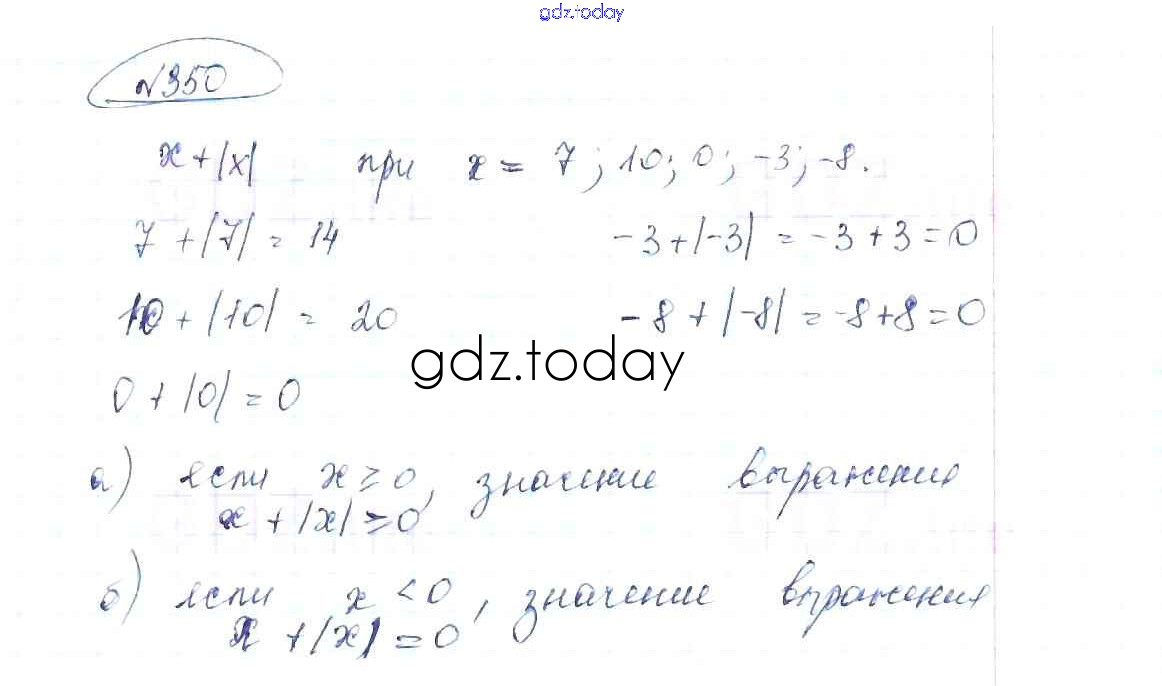 gdz.today
№350
x+|x| при x = 7; 10; 0; -3; -8.
7 + |7| = 14 -3+|-3| = -3+3=0
10 + |10| = 20 -8+|-8| = -8+8=0
gdz.today
0 + |0| = 0
а) если x ≥ 0, значение выражения
x + |x| ≥ 0
б) если x < 0, значение выражения
x + |x| = 0